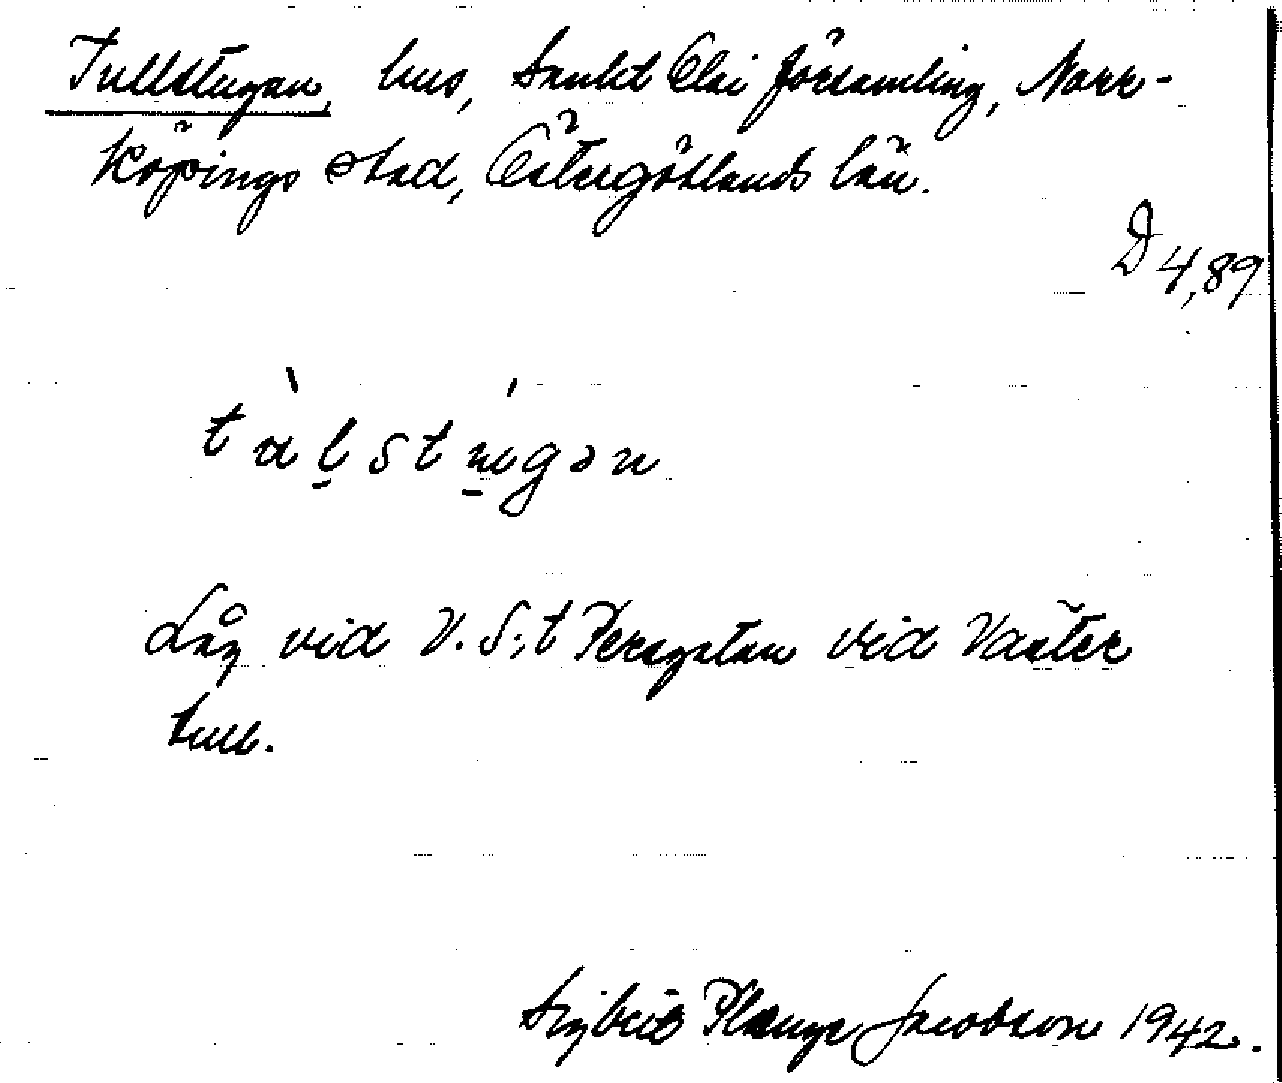 Tullstugan, hus, Sankt Olai församling, Norr-
köpings stad, Östergötlands län.
D 4,89
Låg vid V. S:t Persgatan vid Väster
tull.
Sigbrit Plænge Jacobson 1942.